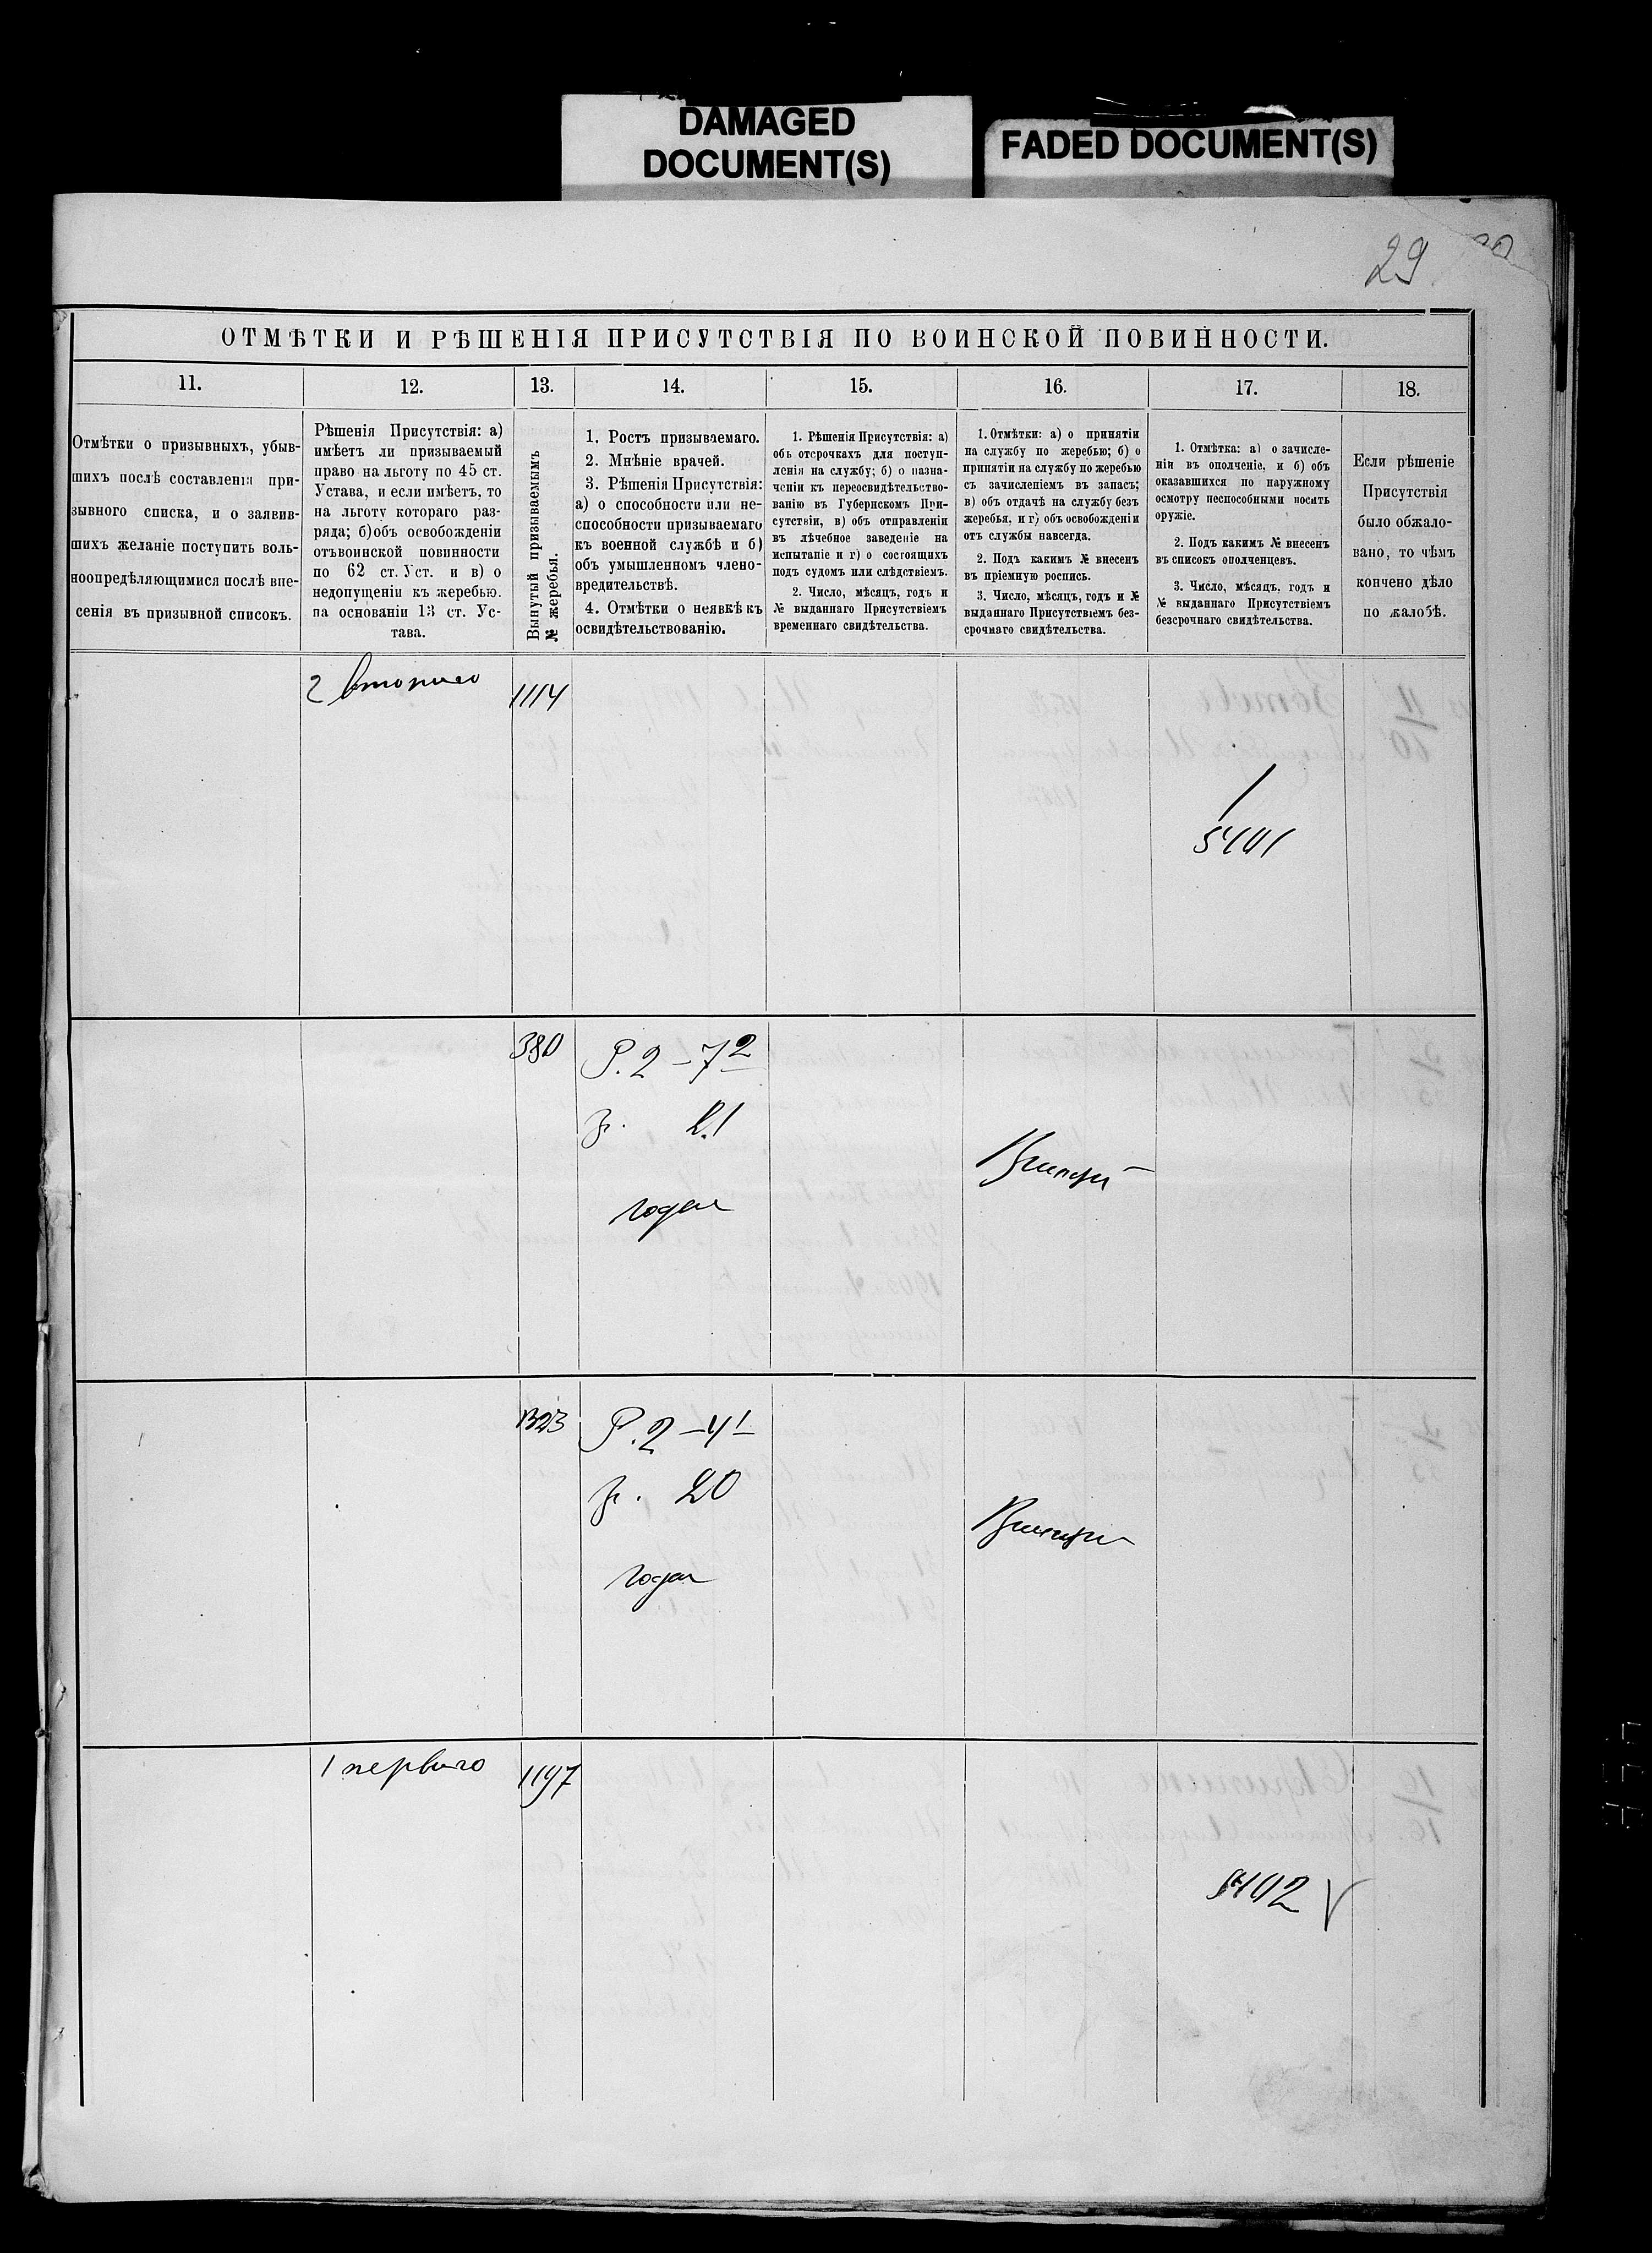 DAMAGED
DOCUMENT(S)
FADED DOCUMENT(S)
29
ОТМѢТКИ И РѢШЕНІЯ ПРИСУТСТВІЯ ПО ВОИНСКОЙ ПОВИННОСТИ.
11.
12.
13.
14.
15.
16.
17.
18.
Отмѣтки о призывныхъ, убыв-
шихъ послѣ составленія при-
зывного списка, и о заявив-
шихъ желаніе поступить воль-
ноопредѣляющимися послѣ вне-
сенія въ призывной списокъ.
Рѣшенія Присутствія: а)
имѣетъ ли призываемый
право на льготу по 45 ст.
Устава, и если имѣетъ, то
на льготу котораго раз-
ряда; б)объ освобожденіи
отъвоинской повинности
по 62 ст. Уст. и в) о
недопущеніи къ жеребью.
на основаніи 13 ст. Ус-
тава.
Вынутый призываемымъ
№ жеребья.
1. Ростъ призываемаго.
2. Мнѣніе врачей.
3. Рѣшенія Присутствія:
а) о способности или не-
способности призываемаго
къ военной службѣ и б)
объ умышленномъ члено-
вредительствѣ.
4. Отмѣтки о неявкѣ къ
освидѣтельствованію.
1. Рѣшенія Присутствія: а)
объ отсрочкахъ для поступ-
ленія на службу; б) о назна-
ченіи къ переосвидѣтельство-
ванію въ Губернскомъ При-
сутствіи, в) объ отправленіи
въ лѣчебное заведеніе на
испытаніе и г) о состоящихъ
подъ судомъ или слѣдствіемъ.
2. Число, мѣсяцъ, годъ и
№ выданнаго Присутствіемъ
временнаго свидѣтельства.
1. Отмѣтки: а) о принятіи
на службу по жеребью; б) о
принятіи на службу по жеребью
съ зачисленіемъ въ запасъ;
в) объ отдачѣ на службу безъ
жеребья, и г) объ освобожденіи
отъ службы навсегда.
2. Подъ какимъ № внесенъ
въ пріемную роспись.
3. Число, мѣсяцъ, годъ и №
выданнаго Присутствіемъ без-
срочнаго свидѣтельства.
1. Отмѣтка: а) о зачисле-
ніи въ ополченіе, и б) объ
оказавшихся по наружному
осмотру неспособными носить
оружіе.
2. Подъ какимъ № внесенъ
въ списокъ ополченцевъ.
3. Число, мѣсяцъ, годъ и
№ выданнаго Присутствіемъ
безсрочнаго свидѣтельства.
Если рѣшеніе
Присутствія
было обжало-
вано, то чѣмъ
кончено дѣло
по жалобѣ.
2 второго
1114
380
Р. 2 – 7 2
21
годен
1323
Р. 2 – 4 1
20
годен
1 первого
1197